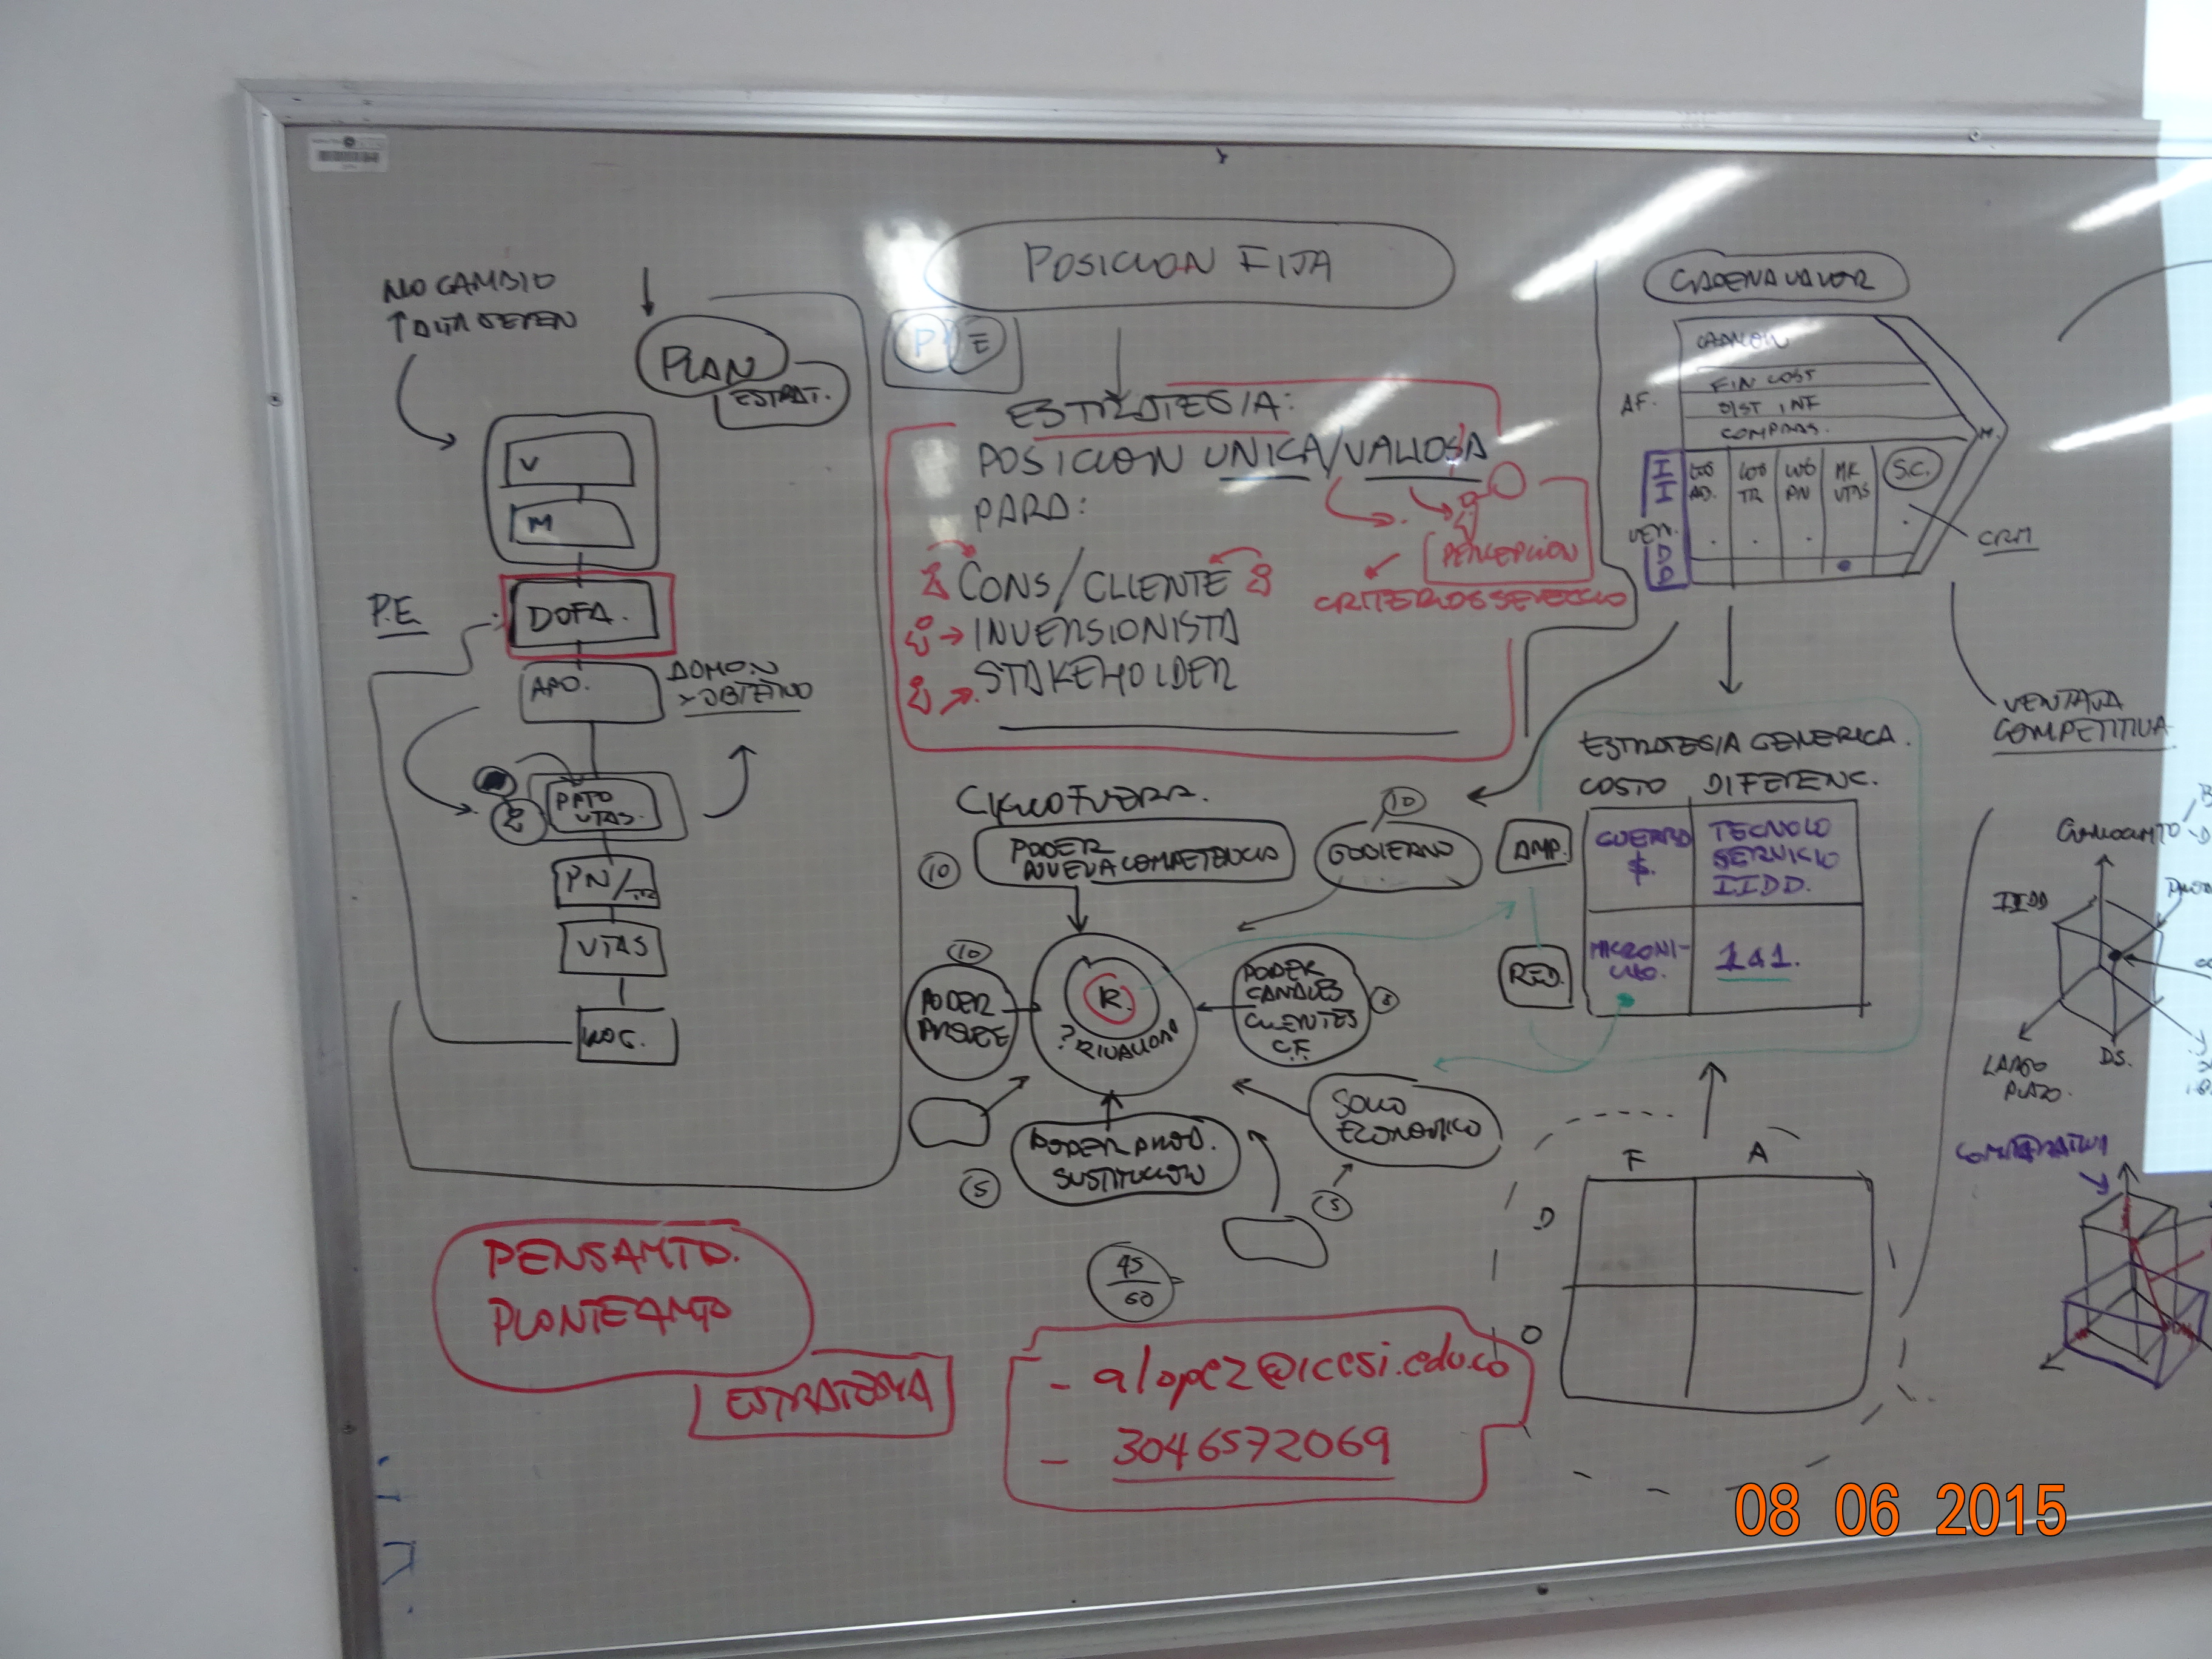 NO CAMBIO
PLAN
ESTRAT.
V
M
P.E.
DOFA.
APO.
ADMON
X OBJETIVO
PPTO
VTAS.
PN/
VTAS
LOG.
PENSAMTO.
PLANTEAMTO
ESTRATEGIA
POSICION FIJA
P E
ESTRATEGIA:
POSICION UNICA/VALIOSA
PARA:
CONS/CLIENTE
INVERSIONISTA
STAKEHOLDER
PERCEPCION
10
PODER
NUEVA COMPETENCIA
GOBIERNO
10
10
PODER
PROVEE
R.
? RIVALIDAD
PODER
CANALES
CLIENTES
C.F.
PODER PROD.
SUSTITUCION
5
ECONOMICO
5
45
60
- alopez@icesi.edu.co
- 3046572069
CADENA VALOR
FIN COST
SIST INF
COMPRAS.
AF.
M.
I
I
D
D
LOG
AD.
LOG
TR
LOG
PN
MK
VTAS
S.C.
CRM
VENTAJA
COMPETITIVA
ESTRATEGIA GENERICA.
COSTO DIFERENC.
AMP.
GUERRA
$.
TECNOLO
SERVICIO
IIDD.
RED.
1 a 1.
F A
D
O
IIDD
LARGO
PLAZO.
DS.
08 06 2015